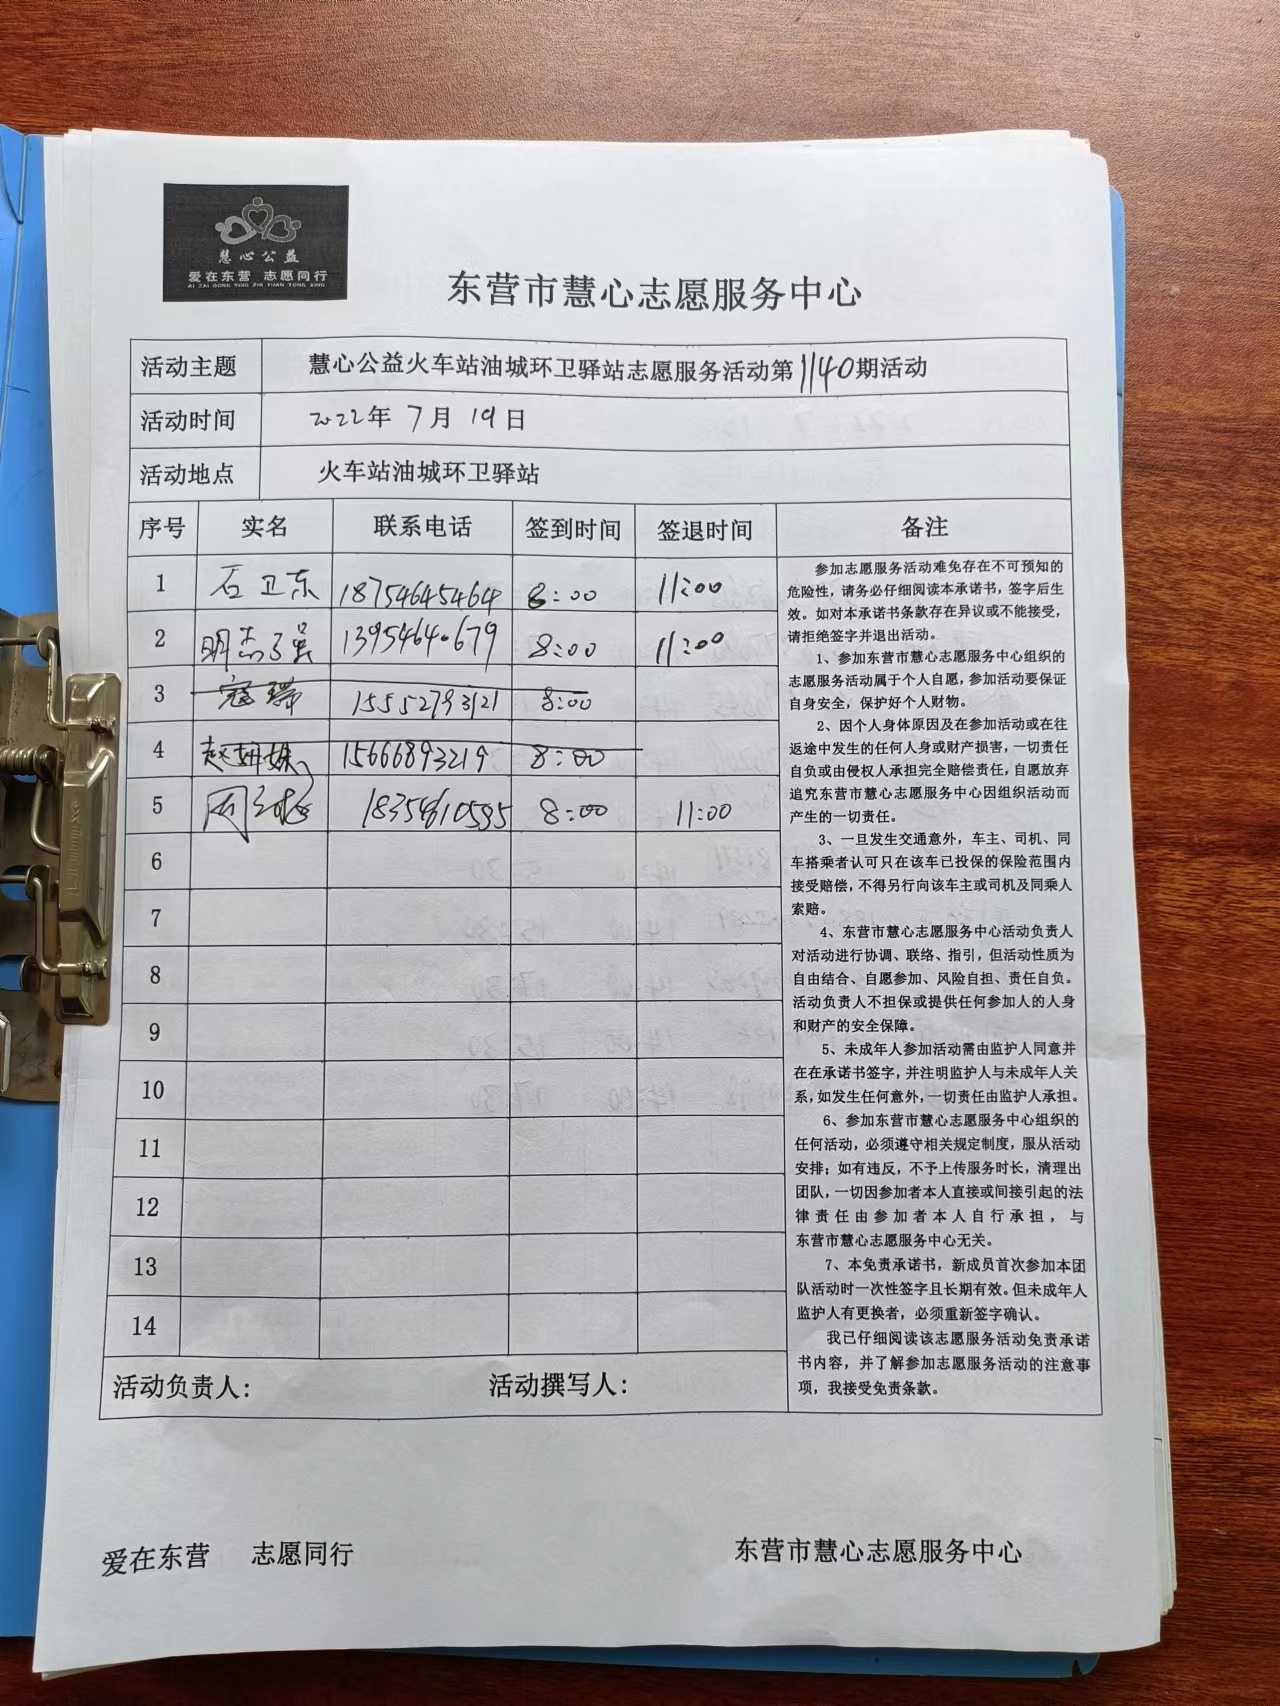 慧心公益
爱在东营 志愿同行
AI ZAI DONG YING ZHI YUAN TONG XING
东营市慧心志愿服务中心
活动主题 慧心公益火车站油城环卫驿站志愿服务活动第1140期活动
活动时间 2022年 7月 19日
活动地点 火车站油城环卫驿站
序号 实名 联系电话 签到时间 签退时间 备注
1 石卫东 18754645464 8:00 11:00
2 明杰 13954640679 8:00 11:00
3 寇瑞 15552793121 8:00
4 赵 15666893219 8:00
5 周 18354610595 8:00 11:00
6
7
8
9
10
11
12
13
14
参加志愿服务活动难免存在不可预知的
危险性，请务必仔细阅读本承诺书，签字后生
效。如对本承诺书条款存在异议或不能接受，
请拒绝签字并退出活动。
1、参加东营市慧心志愿服务中心组织的
志愿服务活动属于个人自愿，参加活动要保证
自身安全，保护好个人财物。
2、因个人身体原因及在参加活动或在往
返途中发生的任何人身或财产损害，一切责任
自负或由侵权人承担完全赔偿责任，自愿放弃
追究东营市慧心志愿服务中心因组织活动而
产生的一切责任。
3、一旦发生交通意外，车主、司机、同
车搭乘者认可只在该车已投保的保险范围内
接受赔偿，不得另行向该车主或司机及同乘人
索赔。
4、东营市慧心志愿服务中心活动负责人
对活动进行协调、联络、指引，但活动性质为
自由结合、自愿参加、风险自担、责任自负。
活动负责人不担保或提供任何参加人的人身
和财产的安全保障。
5、未成年人参加活动需由监护人同意并
在在承诺书签字，并注明监护人与未成年人关
系，如发生任何意外，一切责任由监护人承担。
6、参加东营市慧心志愿服务中心组织的
任何活动，必须遵守相关规定制度，服从活动
安排；如有违反，不予上传服务时长，清理出
团队，一切因参加者本人直接或间接引起的法
律责任由参加者本人自行承担，与
东营市慧心志愿服务中心无关。
7、本免责承诺书，新成员首次参加本团
队活动时一次性签字且长期有效。但未成年人
监护人有更换者，必须重新签字确认。
我已仔细阅读该志愿服务活动免责承诺
书内容，并了解参加志愿服务活动的注意事
项，我接受免责条款。
活动负责人： 活动撰写人：
爱在东营 志愿同行 东营市慧心志愿服务中心